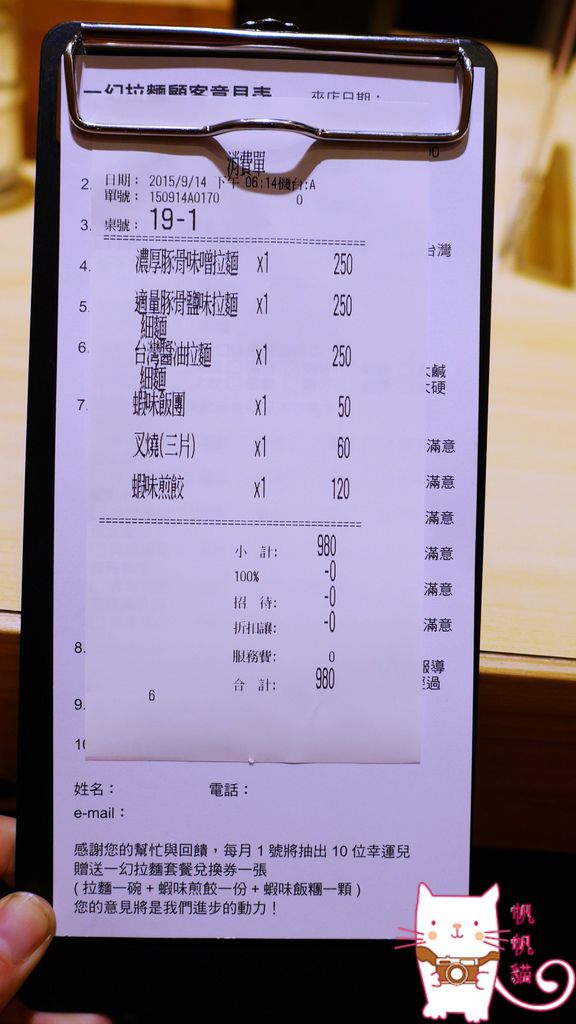 一幻拉麵顧客意見表 來店日期：
消費單
日期： 2015/9/14 下午 06:14機台:A
單號： 150914A0170 0
桌號： 19-1
濃厚豚骨味噌拉麵 x1 250
適量豚骨鹽味拉麵 x1 250
細麵
台灣醬油拉麵 x1 250
細麵
蝦味飯團 x1 50
叉燒(三片) x1 60
蝦味煎餃 x1 120
小 計: 980
100% -0
招 待: -0
折扣讓: -0
服務費: 0
合 計: 980
6
2.
3.
4.
5.
6.
7.
8.
9.
10
台灣
太鹹
太硬
滿意
滿意
滿意
滿意
滿意
滿意
報導
經過
姓名： 電話：
e-mail：
感謝您的幫忙與回饋，每月 1 號將抽出 10 位幸運兒
贈送一幻拉麵套餐兌換券一張
( 拉麵一碗 + 蝦味煎餃一份 + 蝦味飯糰一顆 )
您的意見將是我們進步的動力！
帆帆貓